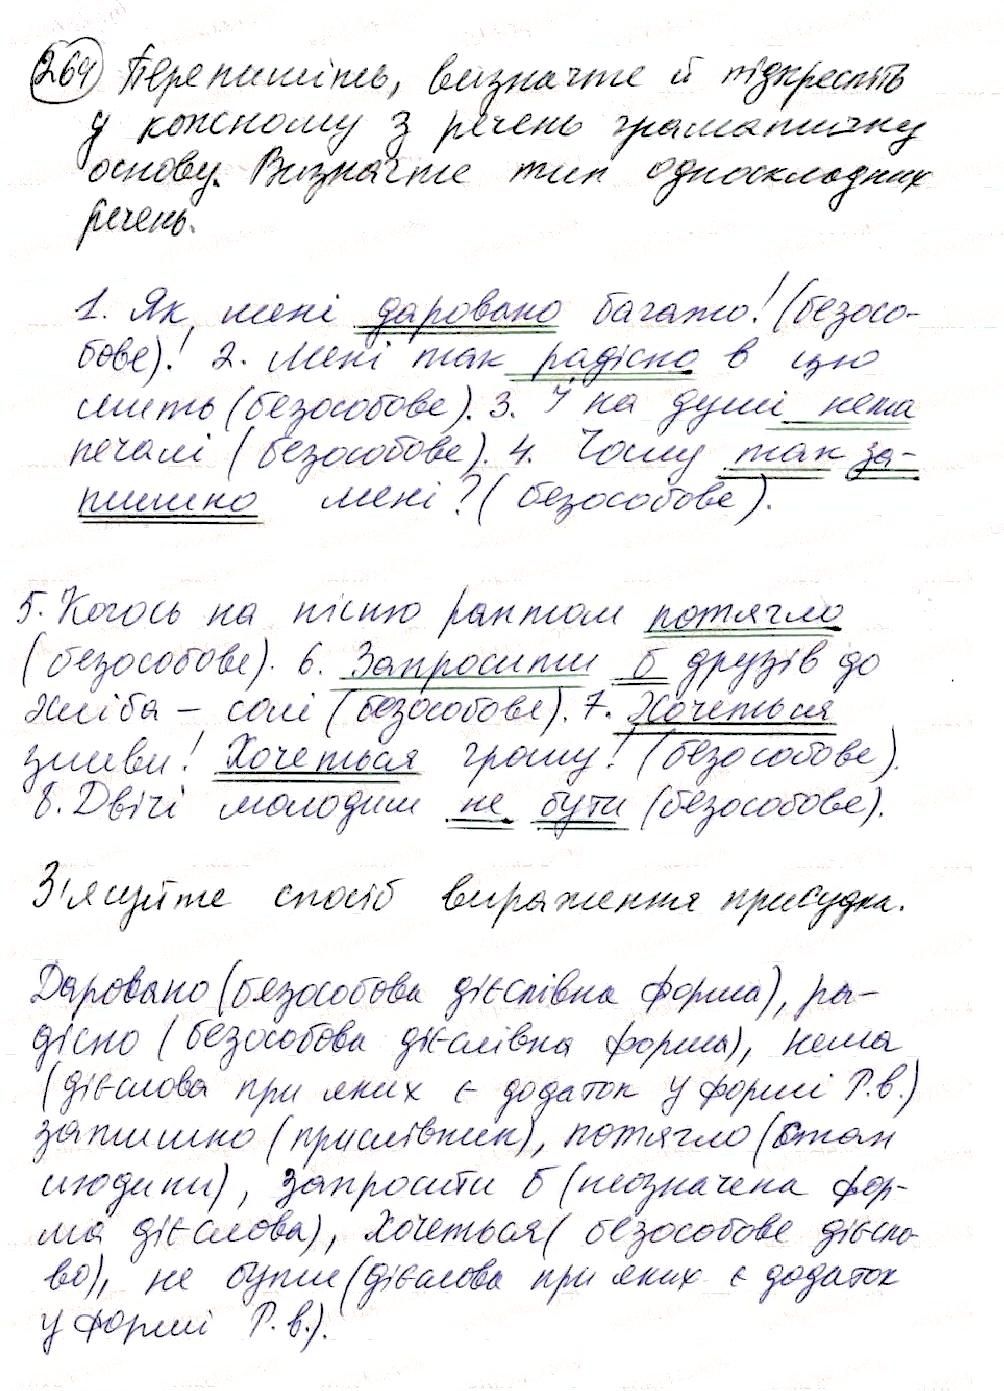 264 Перепишіть, визначте й підкресліть
у кожному з речень граматичну
основу. Визначте тип односкладних
речень.
1. Як мені даровано багато! (безосо-
бове)! 2. Мені так радісно в цю
мить (безособове). 3. Й на душі нема
печалі (безособове). 4. Чому так за-
тишно мені? (безособове).
5. Когось на пісню раптом потягло
(безособове). 6. Запросити б друзів до
хліба - солі (безособове). 7. Хочеться
зливи! Хочеться грому! (безособове).
8. Двічі молодим не бути (безособове).
З'ясуйте спосіб вираження присудка.
Даровано (безособова дієслівна форма), ра-
дісно (безособова дієслівна форма), нема
(дієслова при яких є додаток у формі Р.в.)
затишно (прислівник), потягло (стан
людини), запросити б (неозначена фор-
ма дієслова), хочеться (безособове дієсло-
во), не бути (дієслова при яких є додаток
у формі Р.в.).